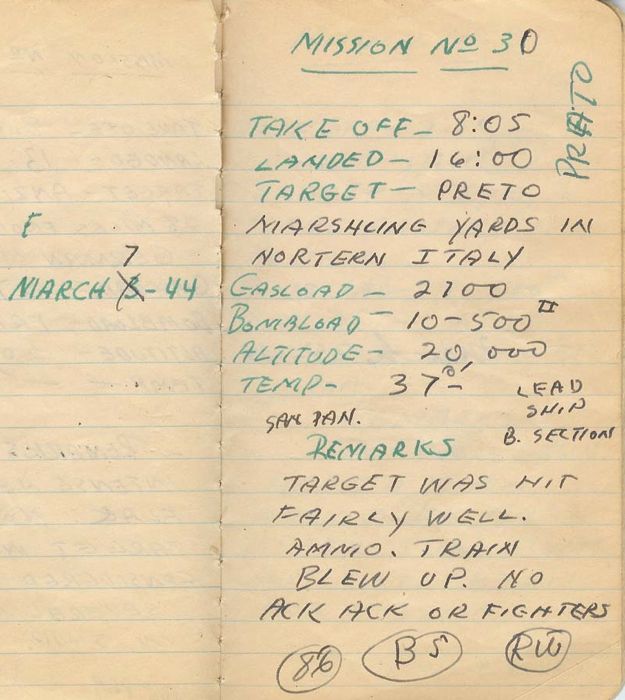 MISSION No 30
PRATO
TAKE OFF - 8:05
LANDED - 16:00
TARGET - PRETO
MARSHLING YARDS IN
NORTERN ITALY
F
7
MARCH 3 - 44
GASLOAD - 2700
BOMBLOAD - 10-500 II
ALTITUDE - 20,000
TEMP - 37° -
LEAD
SHIP
B. SECTION
SAN PAN.
REMARKS
TARGET WAS HIT
FAIRLY WELL.
AMMO. TRAIN
BLEW UP. NO
ACK ACK OR FIGHTERS
86 BS RW